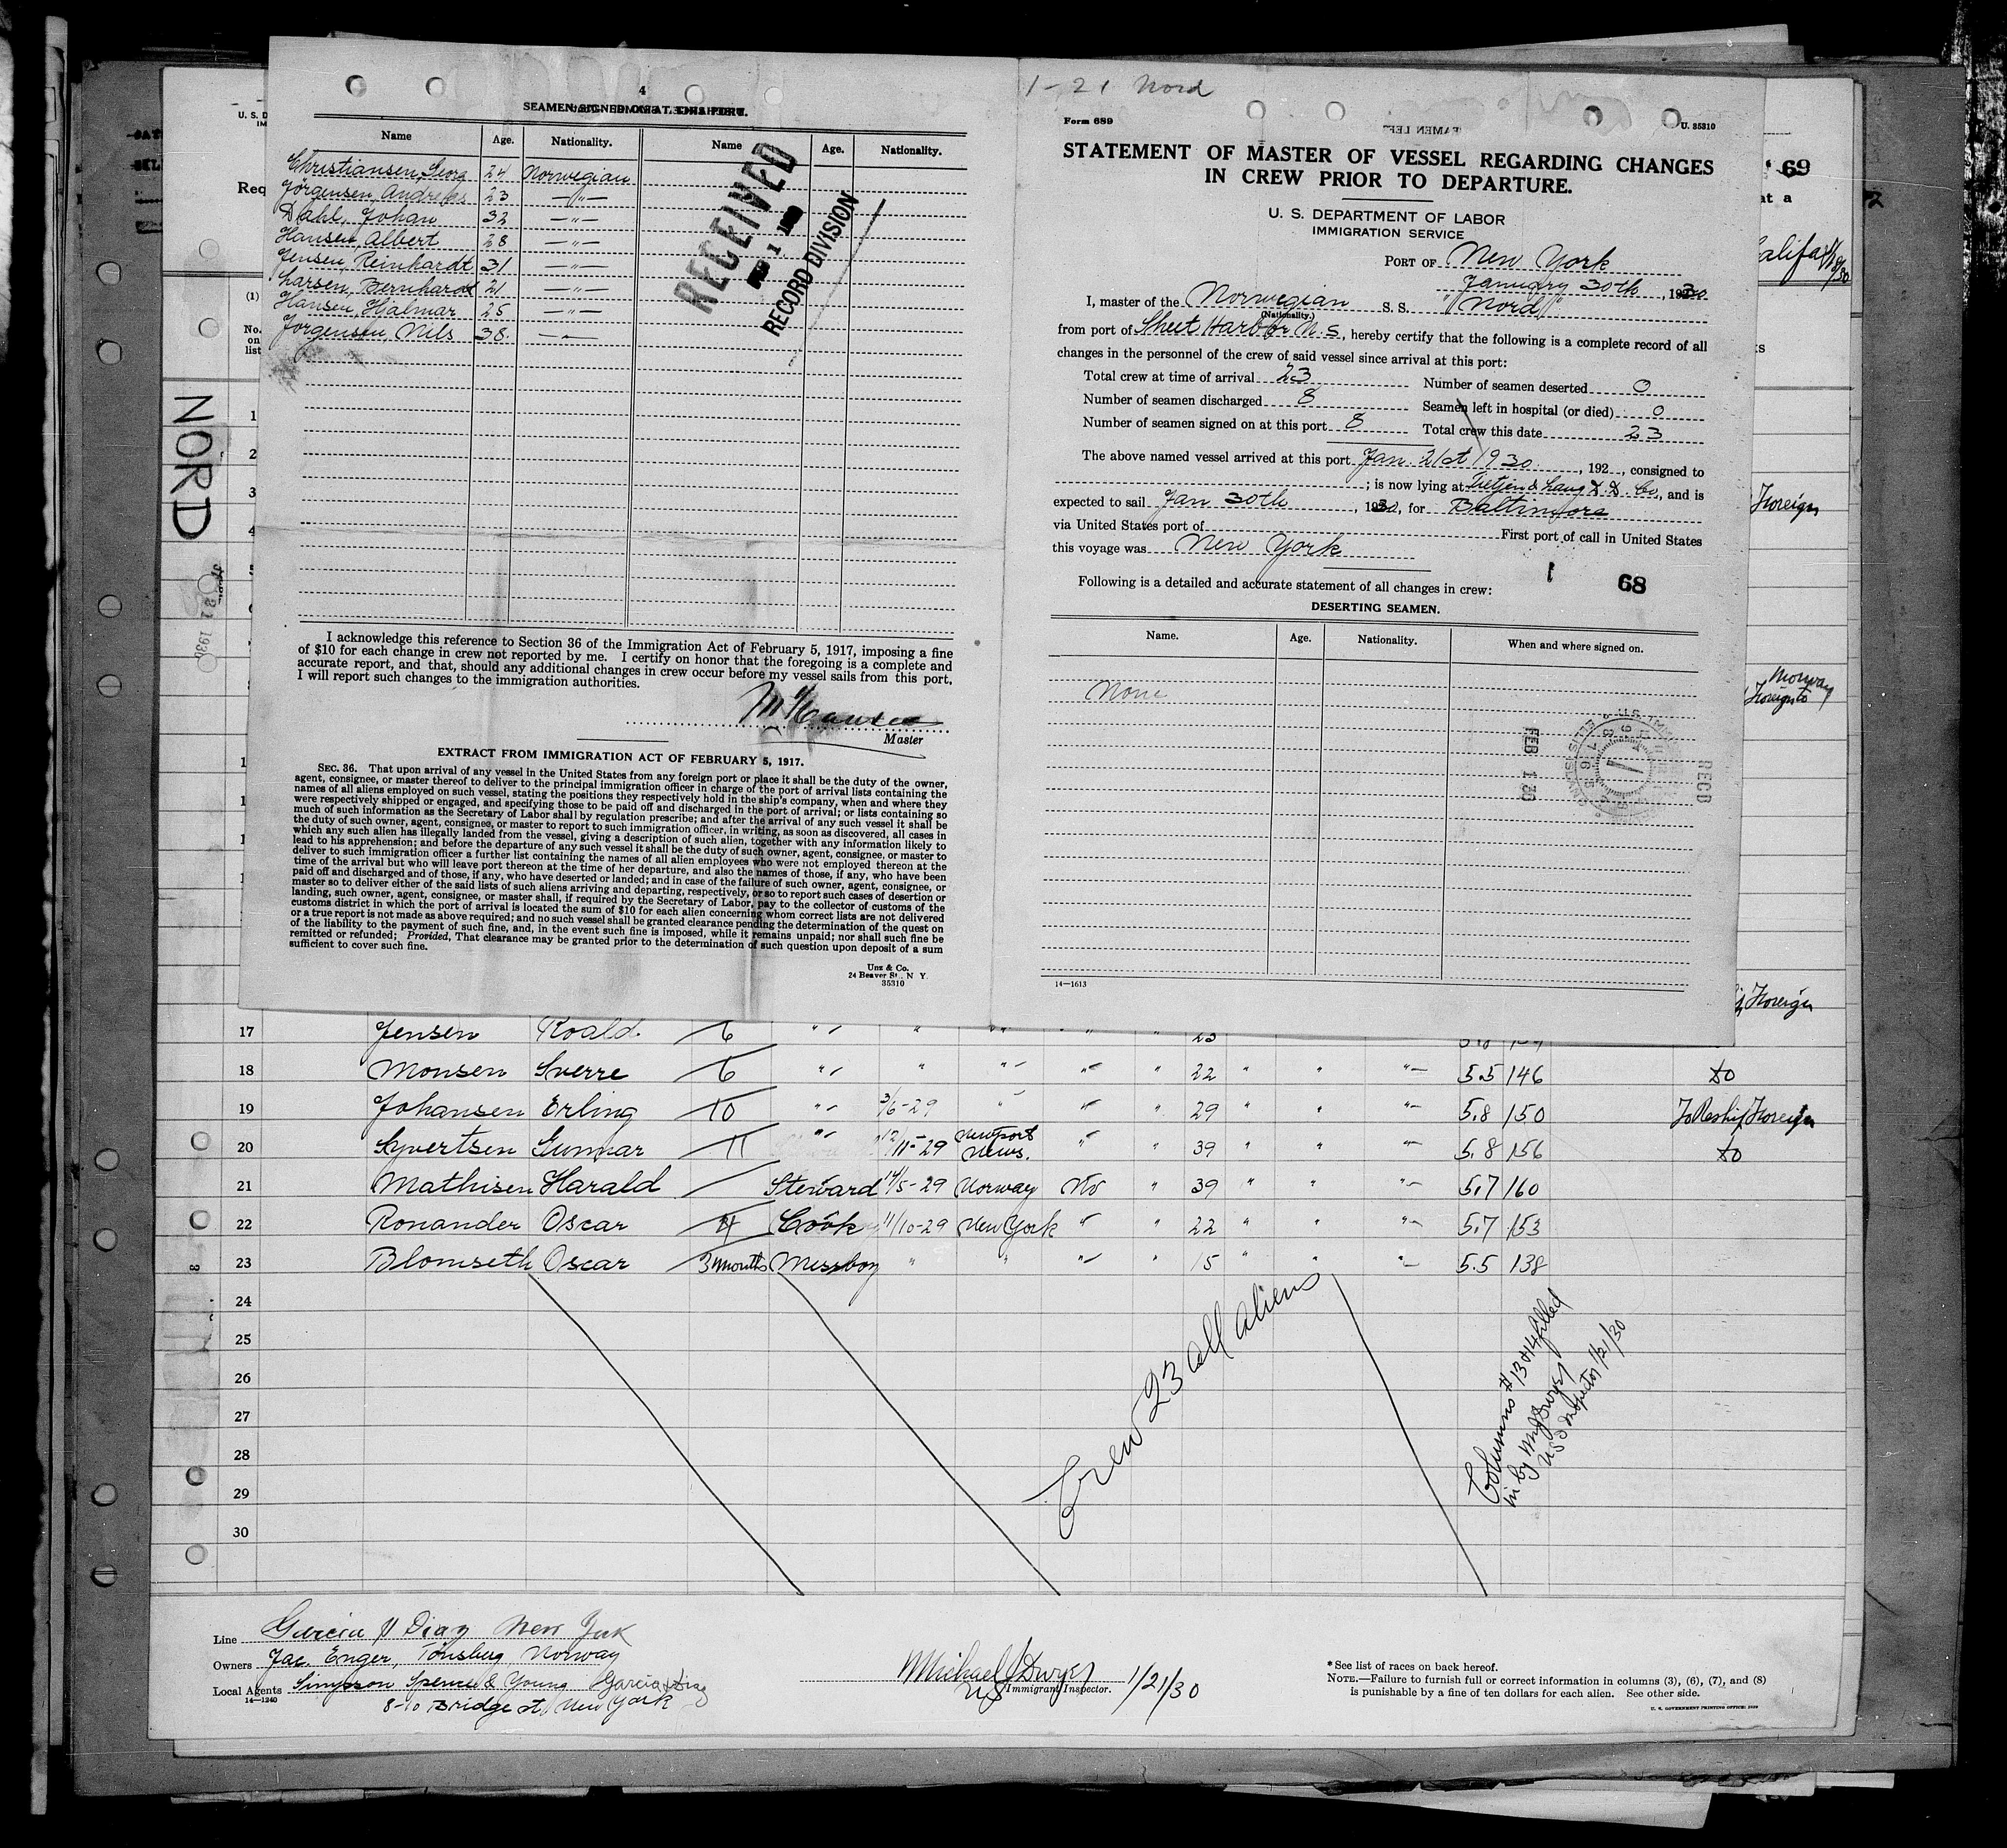 1-21 Nord
4
SEAMEN SIGNED ON AT THIS PORT.
Name Age. Nationality. Name Age. Nationality.
Christiansen, Georg 24 Norwegian
Jörgensen, Andreas 23 —"—
Dahl, Johan 32 —"—
Hansen, Albert 28 —"—
Jensen, Reinhardt 31 —"—
Larsen, Bernhardt 21 —"—
Hansen, Hjalmar 25 —"—
Jorgensen, Nils 38. —"—
RECEIVED
RECORD DIVISION
I acknowledge this reference to Section 36 of the Immigration Act of February 5, 1917, imposing a fine
of $10 for each change in crew not reported by me. I certify on honor that the foregoing is a complete and
accurate report, and that, should any additional changes in crew occur before my vessel sails from this port,
I will report such changes to the immigration authorities.
M Hansen
Master
EXTRACT FROM IMMIGRATION ACT OF FEBRUARY 5, 1917.
SEC. 36. That upon arrival of any vessel in the United States from any foreign port or place it shall be the duty of the owner,
agent, consignee, or master thereof to deliver to the principal immigration officer in charge of the port of arrival lists containing the
names of all aliens employed on such vessel, stating the positions they respectively hold in the ship's company, when and where they
were respectively shipped or engaged, and specifying those to be paid off and discharged in the port of arrival; or lists containing so
much of such information as the Secretary of Labor shall by regulation prescribe; and after the arrival of any such vessel it shall be
the duty of such owner, agent, consignee, or master to report to such immigration officer, in writing, as soon as discovered, all cases in
which any such alien has illegally landed from the vessel, giving a description of such alien, together with any information likely to
lead to his apprehension; and before the departure of any such vessel it shall be the duty of such owner, agent, consignee, or master to
deliver to such immigration officer a further list containing the names of all alien employees who were not employed thereon at the
time of the arrival but who will leave port thereon at the time of her departure, and also the names of those, if any, who have been
paid off and discharged and of those, if any, who have deserted or landed; and in case of the failure of such owner, agent, consignee, or
master so to deliver either of the said lists of such aliens arriving and departing, respectively, or so to report such cases of desertion or
landing, such owner, agent, consignee, or master shall, if required by the Secretary of Labor, pay to the collector of customs of the
customs district in which the port of arrival is located the sum of $10 for each alien concerning whom correct lists are not delivered
or a true report is not made as above required; and no such vessel shall be granted clearance pending the determination of the quest on
of the liability to the payment of such fine, and, in the event such fine is imposed, while it remains unpaid; nor shall such fine be
remitted or refunded; Provided, That clearance may be granted prior to the determination of such question upon deposit of a sum
sufficient to cover such fine.
Unz & Co.
24 Beaver St., N Y.
35310
Form 689 U. 35310
STATEMENT OF MASTER OF VESSEL REGARDING CHANGES
IN CREW PRIOR TO DEPARTURE.
U. S. DEPARTMENT OF LABOR
IMMIGRATION SERVICE
PORT OF New York
January 30th, 1930.
I, master of the Norwegian S. S. "Nord"
(Nationality.)
from port of Sheet Harbor N.S., hereby certify that the following is a complete record of all
changes in the personnel of the crew of said vessel since arrival at this port:
Total crew at time of arrival 23 Number of seamen deserted 0
Number of seamen discharged 8 Seamen left in hospital (or died) 0
Number of seamen signed on at this port 8 Total crew this date 23
The above named vessel arrived at this port Jan. 21st 1930, 192 , consigned to
; is now lying at Tietjen & Lang D.D. Co, and is
expected to sail Jan 30th, 1930, for Baltimore
via United States port of First port of call in United States
this voyage was New York
Following is a detailed and accurate statement of all changes in crew: 68
DESERTING SEAMEN.
Name. Age. Nationality. When and where signed on.
None
FEB 1 30
RECD
14—1613
69
NORD
Foreign
Norway
Foreign to
Foreign
17 Jensen Roald 6 23
18 Monsen Sverre 6 " " " " " 22 " " " 5.5 146 do
19 Johansen Erling 10 " 3/6-29 " " " 29 " " " 5.8 150 To Reship Foreign
20 Syvertsen Gunnar 11 " 12/11-29 Newport News. " " 39 " " " 5.8 156 do
21 Mathisen Harald Steward 14/5-29 Norway No " 39 " " " 5.7 160
22 Ronander Oscar 4 Cook 11/10-29 New York " " 22 " " " 5.7 153
23 Blomseth Oscar 3 months Messboy " " " " 15 " " " 5.5 138
24
25
26
27
28
29
30
Crew 23 all aliens
Columns # 13 & 14 filled
in by M J Dwyer
US Inspector 1/21/30
Line Garcia & Diaz New York
Owners Jac. Enger, Tönsberg Norway
Local Agents Simpson Spence & Young Garcia & Diaz
14—1240
8-10 Bridge St, New York
Michael J Dwyer 1/21/30
US Immigrant Inspector.
* See list of races on back hereof.
NOTE.—Failure to furnish full or correct information in columns (3), (6), (7), and (8)
is punishable by a fine of ten dollars for each alien. See other side.
U. S. GOVERNMENT PRINTING OFFICE: 1929